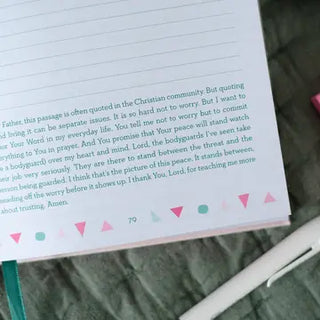 Father, this passage is often quoted in the Christian community. But quoting
and living it can be separate issues. It is so hard not to worry. But I want to
Your Word in my everyday life. You tell me not to worry but to commit
everything to You in prayer. And You promise that Your peace will stand watch
a bodyguard) over my heart and mind. Lord, the bodyguards I've seen take
their job very seriously. They are there to stand between the threat and the
person being guarded. I think that's the picture of this peace. It stands between,
heading off the worry before it shows up. I thank You, Lord, for teaching me more
about trusting. Amen.
79